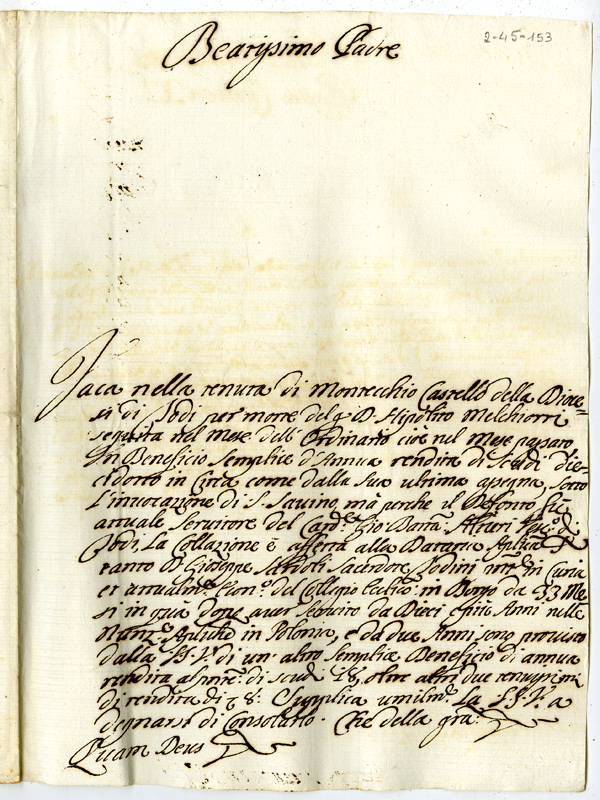 2-45-153
Beatissimo Padre
Vaca nella tenuta di Montecchio Castello della Dioce=
si di Jodi per morte del q. D. Hipolito Melchiorri
seguita nel mese dell' Ordinario cioè nel Mese passato
Un Beneficio Semplice d'Annua rendita di Scudi die=
cidotto in circa come dalla sua ultima assegna, sotto
L'invocazione di S. Savino, mà perche il Defonto fù
attuale servitore del Card. Gio Batta: Alfieri di
Jodi, La Collazione è affetta alla Dataria Aplica
tanto D. Giuseppe Sacerdote Jodini in Curia
et attualm. del Collegio in Borgo da 33 Me
si in quà dopo aver servito da Dieci e più Anni nella
Nunz. Aplica in Polonia, e da due Anni sono provisto
dalla S. V. di un altro semplice Beneficio di annua
rendita di scudi 18, oltre altri due
di rendita di 8. Supplica umilm. La S. V. a
degnarsi di Consolarlo. Che della gra:
Quam Deus